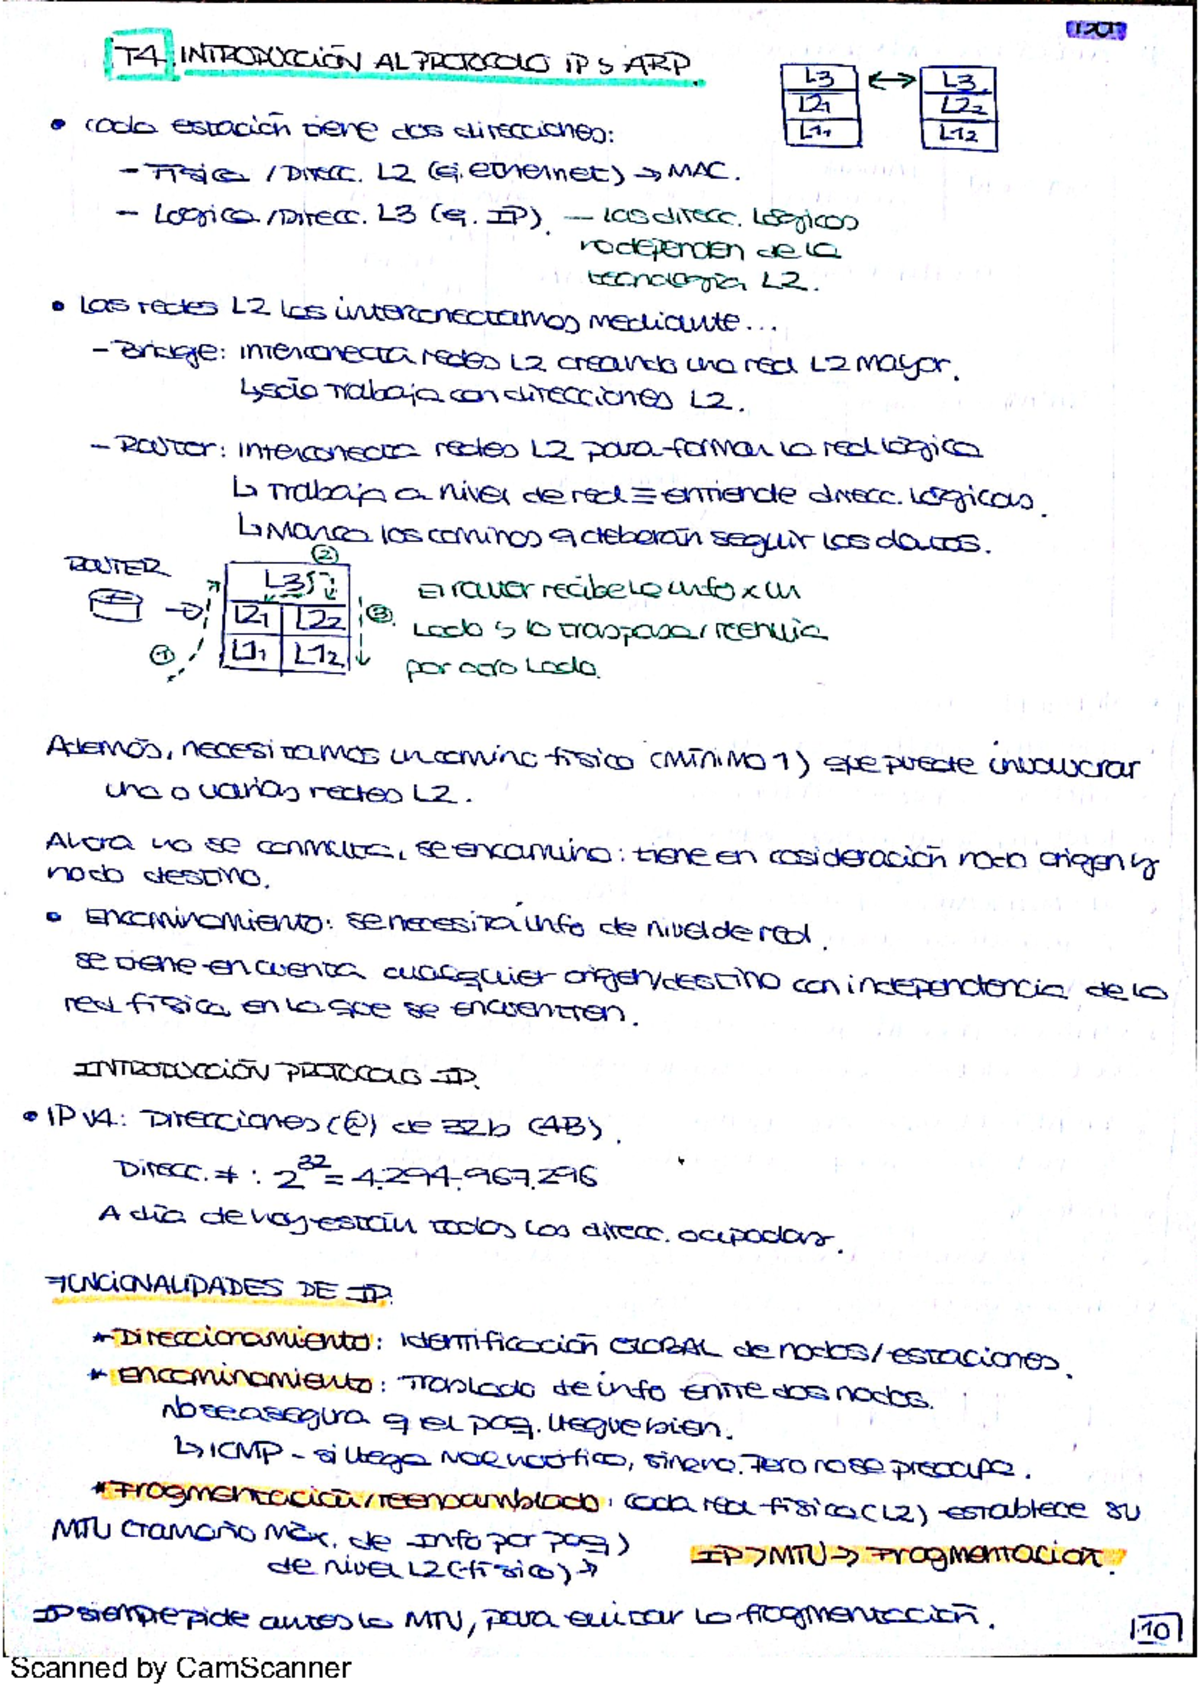 T4 INTRODUCCIÓN AL PROTOCOLO IP y ARP.
L3 ↔ L3
L21 L22
L11 L12
• Cada estación tiene dos direcciones:
- Física / Direcc. L2 (ej. ethernet) → MAC.
- Lógica / Direcc. L3 (ej. IP). — las direcc. lógicas
no dependen de la
tecnología L2.
• Las redes L2 las interconectamos mediante...
- Bridge: interconecta redes L2 creando una red L2 mayor.
↳ sólo trabaja con direcciones L2.
- Router: interconecta redes L2 para formar la red lógica
↳ Trabaja a nivel de red ≡ entiende direcc. lógicas.
↳ Marca los caminos q deberán seguir los datos.
ROUTER
②
L3
L21 L22
L11 L12
①
③
El router recibe la info x un
lado y lo traspasa/reenvia
por otro lado.
Además, necesitamos un camino físico (mínimo 1) que puede involucrar
una o varias redes L2.
Ahora no se conmuta, se encamina: tiene en cosideración nodo origen y
nodo destino.
• Encaminamiento: se necesita info de nivel de red.
se tiene en cuenta cualquier origen/destino con independencia de la
red física en la que se encuentren.
INTRODUCCIÓN PROTOCOLO IP.
• IPv4: Direcciones (@) de 32b (4B).
Direcc. ≠ : 2^32 = 4.294.967.296
A día de hoy están todas las direcc. ocupadas.
FUNCIONALIDADES DE IP.
* Direccionamiento: Identificación GLOBAL de nodos/estaciones.
* Encaminamiento: Traslado de info entre dos nodos.
No se asegura q el paq. llegue bien.
↳ ICMP - si llega notifico, sino no. Pero no se preocupa.
* Fragmentación/reensamblado: cada red física (L2) establece su
MTU (tamaño máx. de Info por paq)
de nivel L2 (físico) →
IP > MTU → Fragmentación.
IP siempre pide antes la MTU, para evitar la fragmentación.
10
Scanned by CamScanner